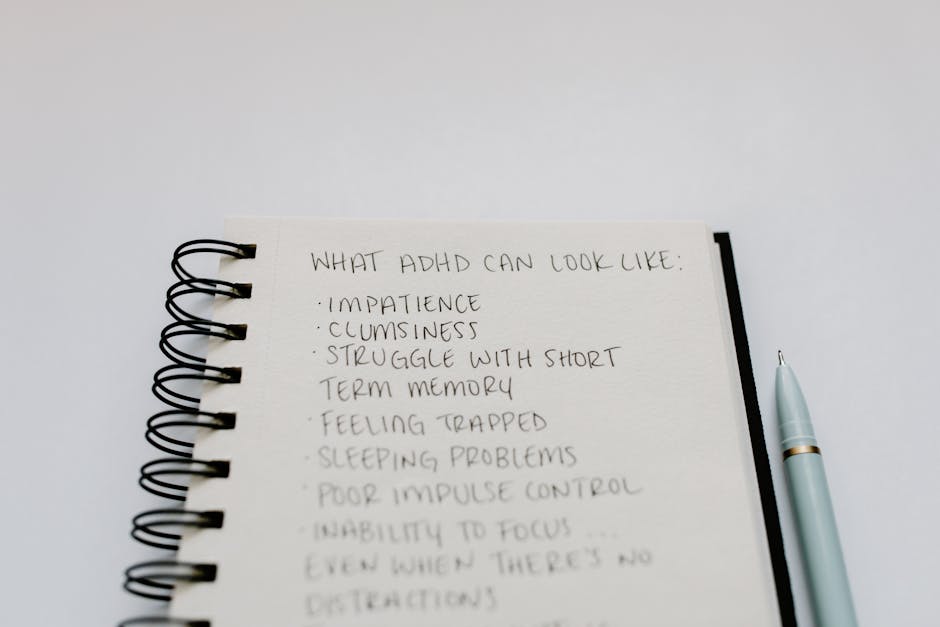 WHAT ADHD CAN LOOK LIKE:
· IMPATIENCE
· CLUMSINESS
· STRUGGLE WITH SHORT
TERM MEMORY
· FEELING TRAPPED
· SLEEPING PROBLEMS
· POOR IMPULSE CONTROL
· INABILITY TO FOCUS ...
EVEN WHEN THERE'S NO
DISTRACTIONS